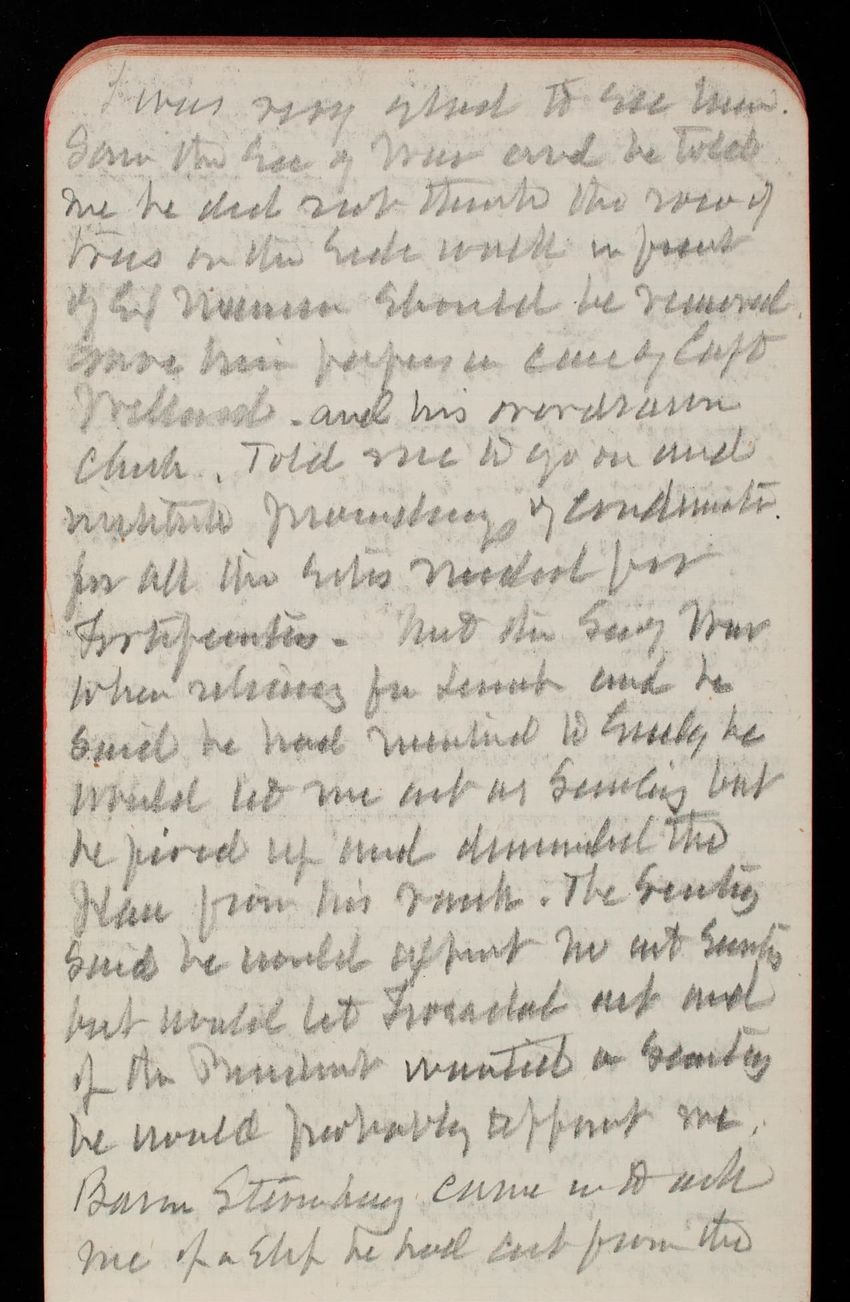 I was very glad to see him.
Saw the Sec of War and he told
me he did not think the row of
trees on the side walk in front
of Ex Mansion should be removed.
Gave him papers in case of Capt
and his overdrawn
check. Told me to go on and
institute proceedings of condemnatn
for all the sites needed for
Fortificatns. Met the Sec of War
when returning from and he
said he had to he
would let me act as Secretary but
he up and demanded the
place from his rank. The Secretary
said he would appoint no act Secretary
but would let act and
if the President wanted a Secretary
he would probably appoint me.
Baron Sternburg came in to ask
me if a slip he had cut from the